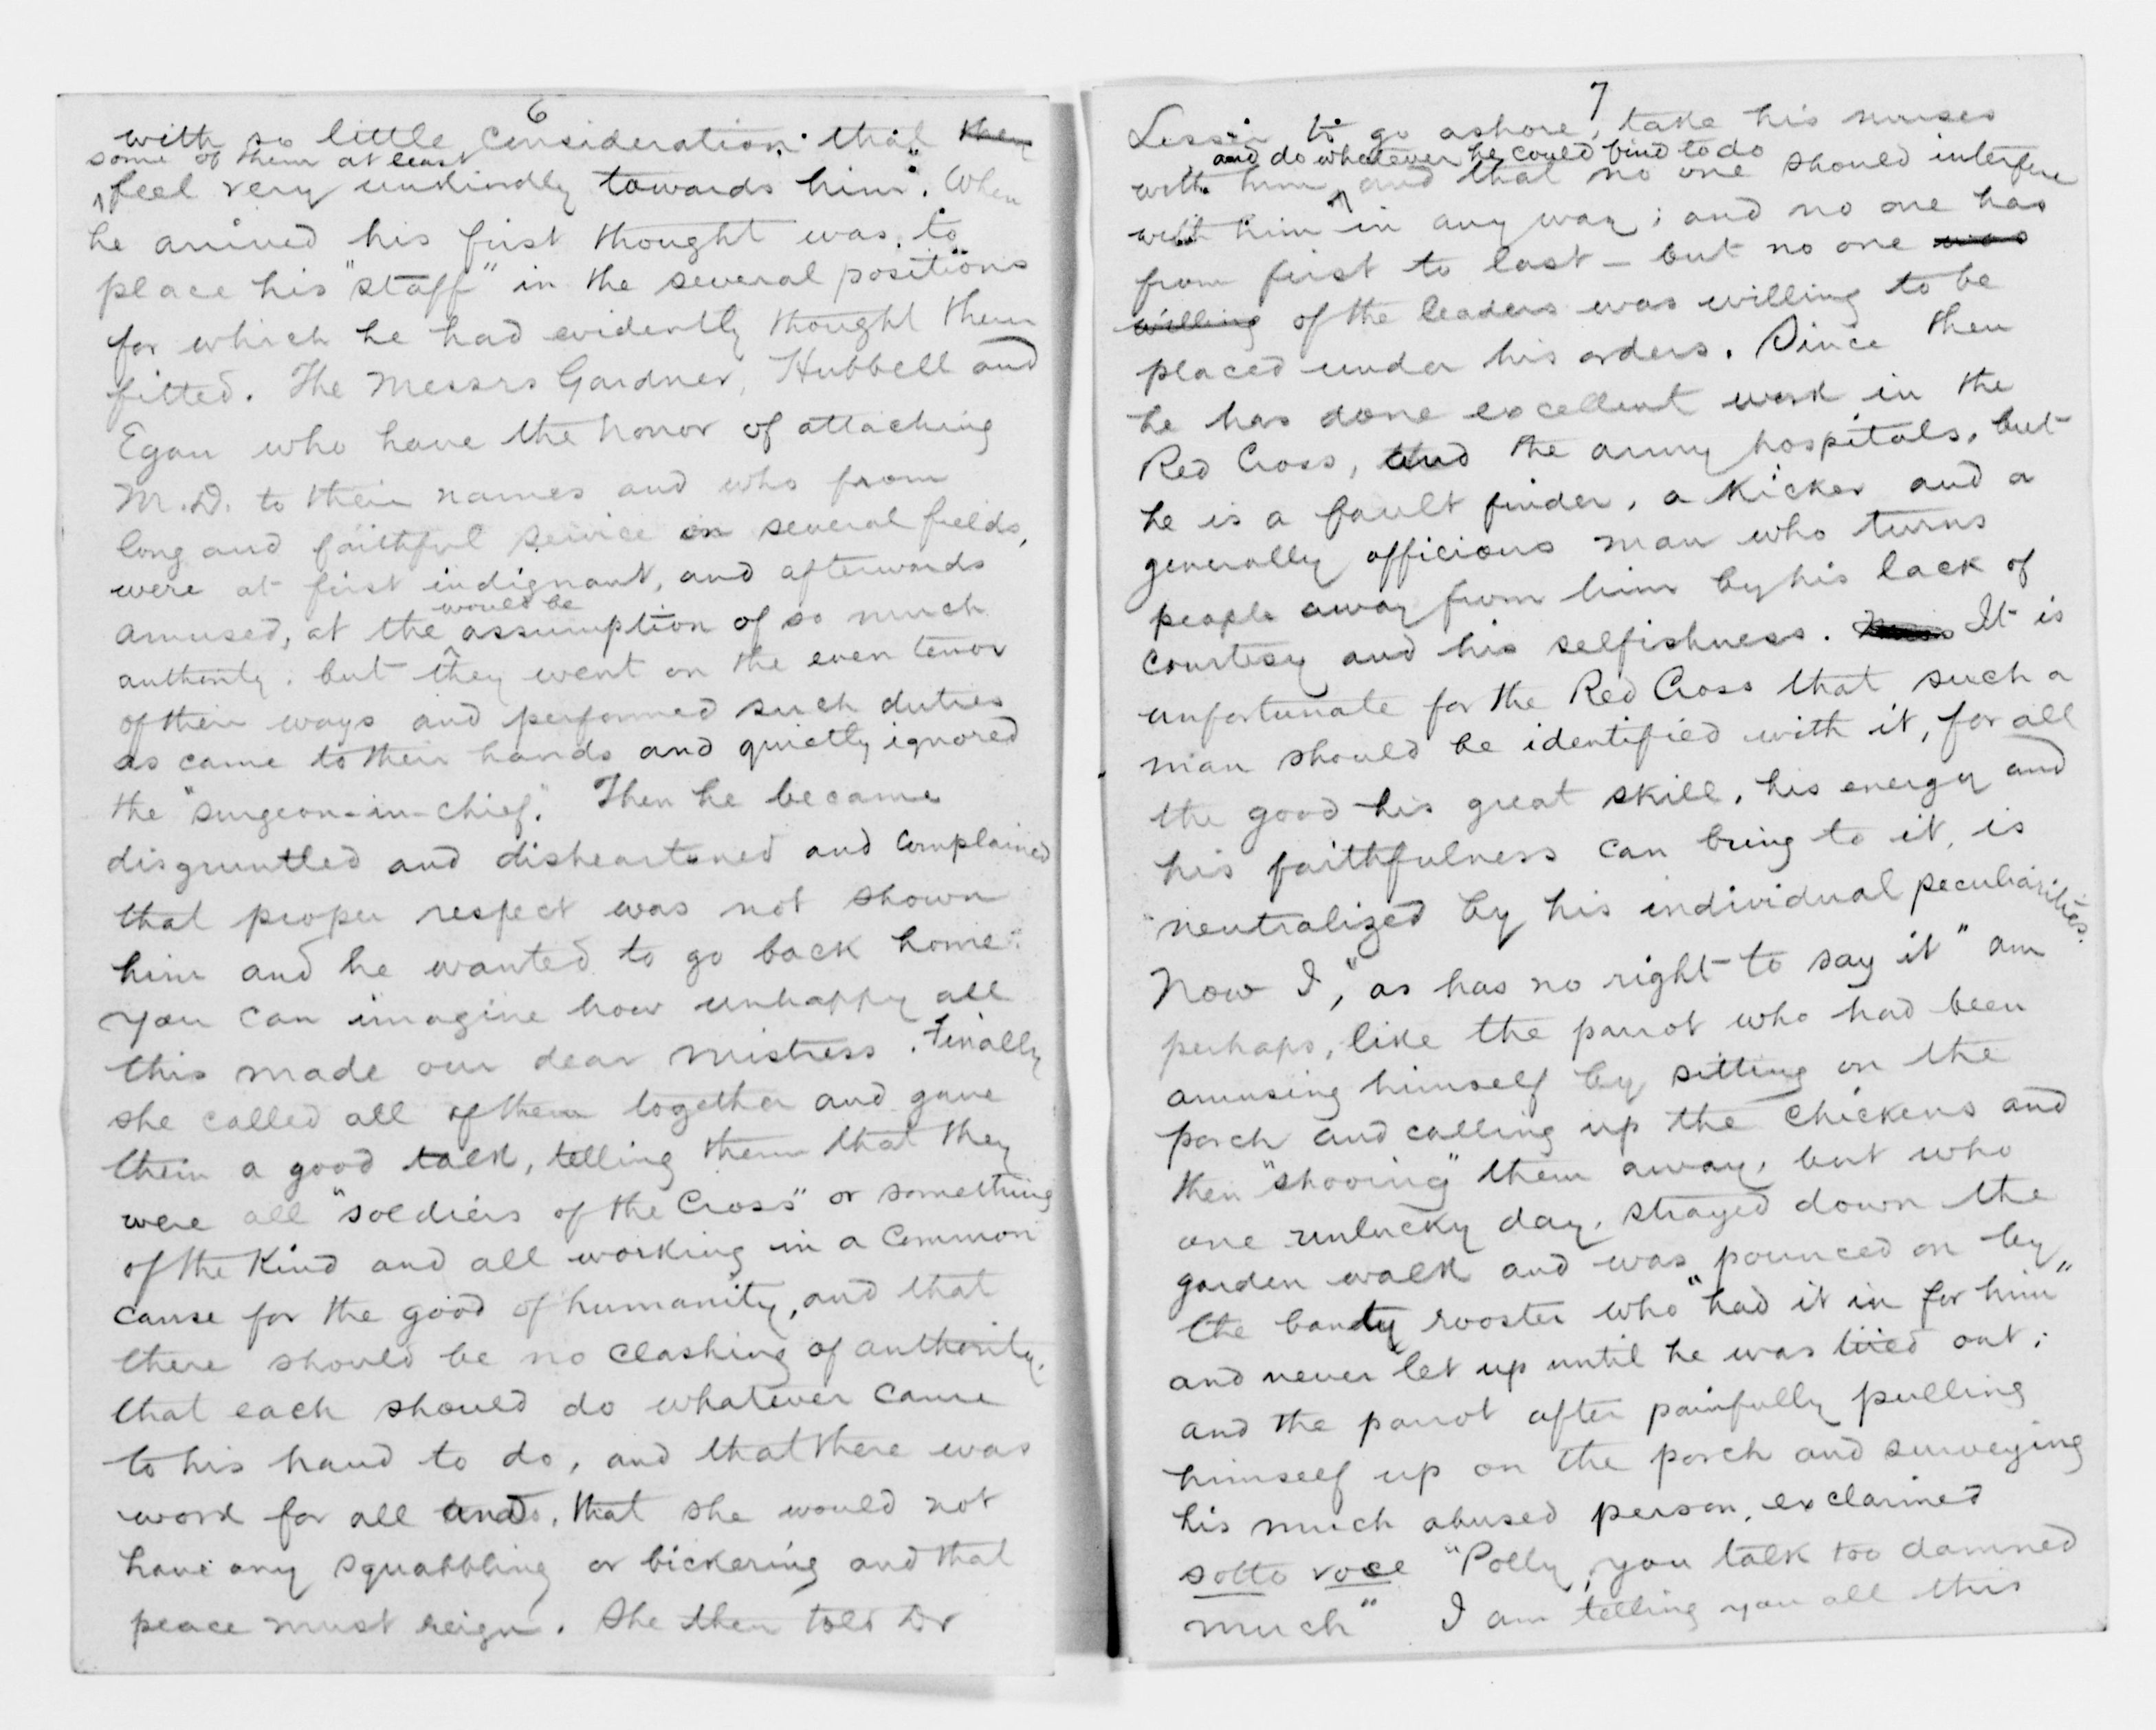 6
with so little consideration that they
some of them at least
feel very unkindly towards him". When
he arrived his first thought was to
place his "staff" in the several positions
for which he had evidently thought them
fitted. The Messrs Gardner, Hubbell and
Egan who have the honor of attaching
M.D. to their names and who from
long and faithful service on several fields,
were at first indignant, and afterwards
would be
amused, at the assumption of so much
authority, but they went on the even tenor
of their ways and performed such duties
as came to their hands and quietly ignored
the "surgeon-in-chief." Then he became
disgruntled and disheartened and complained
that proper respect was not shown
him and he wanted to go back home.
You can imagine how unhappy all
this made our dear Mistress. Finally
she called all of them together and gave
them a good talk, telling them that they
were all "soldiers of the Cross" or something
of the kind and all working in a common
cause for the good of humanity, and that
there should be no clashing of authority,
that each should do whatever came
to his hand to do, and that there was
work for all and, that she would not
have any squabbling or bickering and that
peace must reign. She then told Dr
7
Lesser to go ashore, take his nurses
and do whatever he could find to do
with him, and that no one should interfere
with him in any way; and no one has
from first to last - but no one was
willing of the leaders was willing to be
placed under his orders. Since then
he has done excellent work in the
Red Cross, and the army hospitals, but
he is a fault finder, a kicker and a
generally officious man who turns
people away from him by his lack of
courtesy and his selfishness. It is
unfortunate for the Red Cross that such a
man should be identified with it, for all
the good his great skill, his energy and
his faithfulness can bring to it, is
neutralized by his individual peculiarities.
Now I, "as has no right to say it" am
perhaps, like the parrot who had been
amusing himself by sitting on the
porch and calling up the chickens and
then "shooing" them away, but who
one unlucky day, strayed down the
garden walk and was pounced on by
the banty rooster who "had it in for him"
and never let up until he was tired out;
and the parrot after painfully pulling
himself up on the porch and surveying
his much abused person, exclaimed
sotto voce "Polly, you talk too damned
much" I am telling you all this